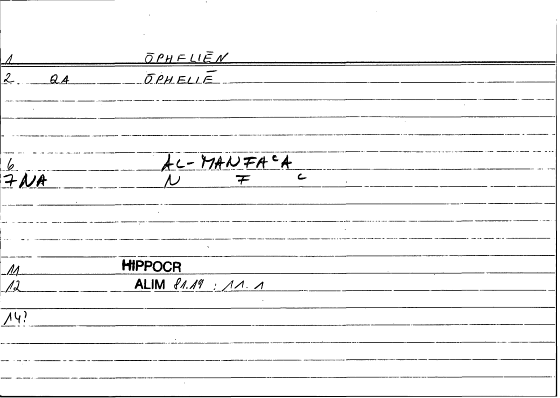 1 ŌPHELIĒN
2 QA ŌPHELIĒ
6 AL-MANFAᶜA
7 NA N F ᶜ
11 HIPPOCR
12 ALIM 81.19 : 11.1
14?